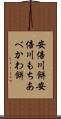 安倍川餅安
倍川もちあ
べかわ餅